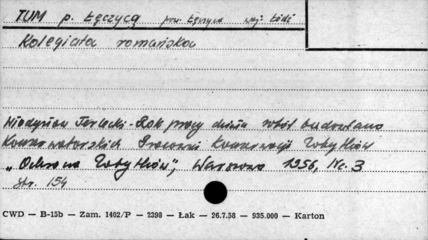 TUM p. Łęczyca pow. Łęczyca woj. Łódź
Kolegiata romańska
Władysław Terlecki - Rok pracy działu robót budowlano
Konserwatorskich Pracowni Konserwacji Zabytków
„Ochrona Zabytków", Warszawa 1956, Nr. 3
str. 154
CWD — B-15b — Zam. 1402/P — 2398 — Łak — 26.7.58 — 935.000 — Karton